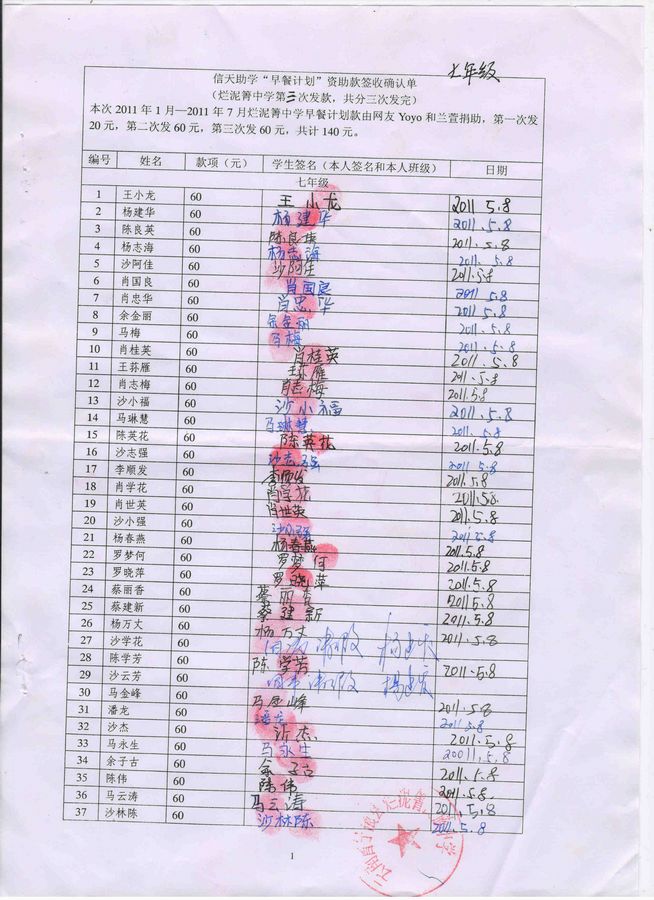 七年级
信天助学“早餐计划”资助款签收确认单
（烂泥箐中学第三次发款，共分三次发完）
本次 2011 年 1 月—2011 年 7 月烂泥箐中学早餐计划款由网友 Yoyo 和兰萱捐助，第一次发
20 元，第二次发 60 元，第三次发 60 元，共计 140 元。
编号 姓名 款项（元） 学生签名（本人签名和本人班级） 日期
七年级
1 王小龙 60 王小龙 2011 5.8
2 杨建华 60 杨建华 2011.5.8
3 陈良英 60 陈良英 2011.5.8
4 杨志海 60 杨志海 2011.5.8
5 沙阿佳 60 沙阿佳 2011.5.8
6 肖国良 60 肖国良 2011 5.8
7 肖忠华 60 肖忠华 2011.5.8
8 余金丽 60 余金丽 2011.5.8
9 马梅 60 马梅 2011.5.8
10 肖桂英 60 肖桂英 2011.5.8
11 王芬雁 60 王芬雁 2011.5.8
12 肖志梅 60 肖志梅 2011.5.8
13 沙小福 60 沙小福 2011.5.8
14 马琳慧 60 马琳慧 2011.5.8
15 陈英花 60 陈英花 2011.5.8
16 沙志强 60 沙志强 2011.5.8
17 李顺发 60 李顺发 2011.5.8
18 肖学花 60 肖学花 2011.5.8
19 肖世英 60 肖世英 2011.5.8
20 沙小强 60 2011.5.8
21 杨春燕 60 杨春燕 2011.5.8
22 罗梦何 60 罗梦何 2011.5.8
23 罗晓萍 60 罗晓萍 2011.5.8
24 蔡丽香 60 蔡丽香 2011.5.8
25 蔡建新 60 蔡建新 2011.5.8
26 杨万丈 60 杨万丈 2011.5.8
27 沙学花 60
28 陈学芳 60 陈学芳 2011.5.8
29 沙云芳 60
30 马金峰 60 马金峰 2011.5.8
31 潘龙 60 潘龙 2011.5.8
32 沙杰 60 沙杰 2011.5.8
33 马永生 60 马永生 20011.5.8
34 余子古 60 余子古 2011.5.8
35 陈伟 60 陈伟 2011.5.8
36 马云涛 60 马云涛 2011.5.8
37 沙林陈 60 沙林陈 2011.5.8
1